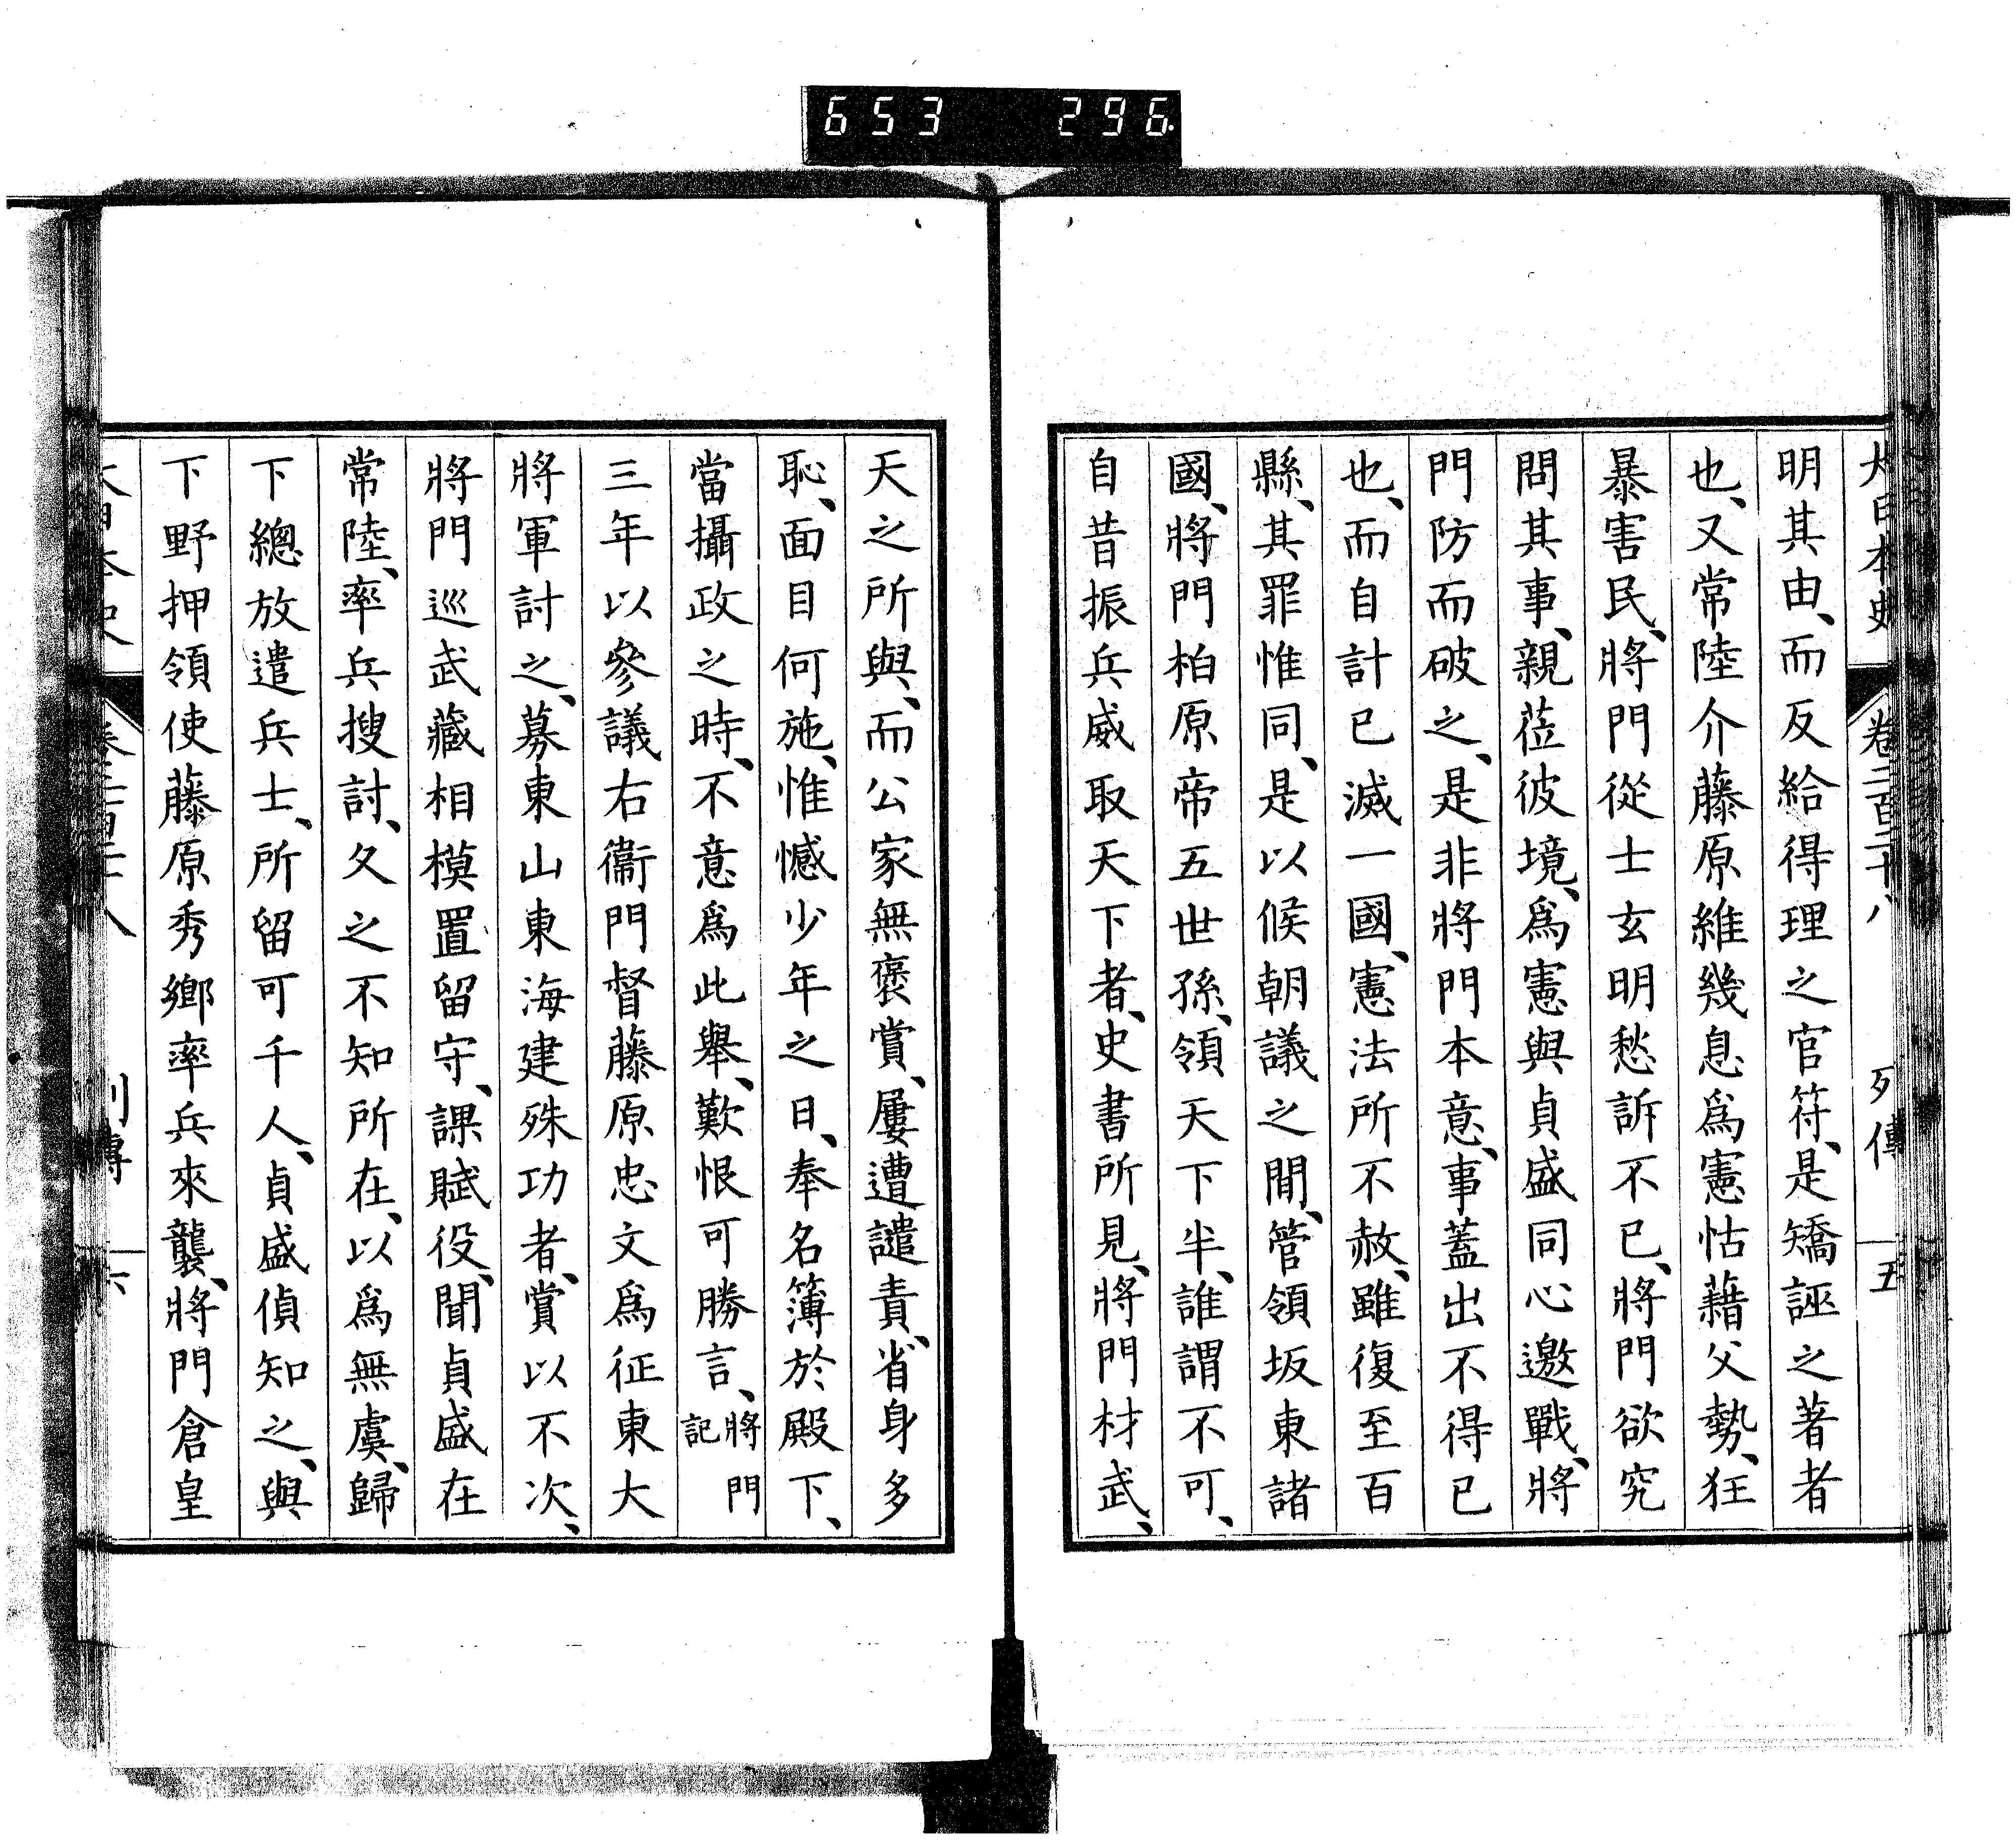 653 296
大日本史 卷二百二十八 列傳 五
明其由、而反給得理之官符、是矯誣之著者
也、又常陸介藤原維幾息爲憲怙藉父勢、狂
暴害民、將門從士玄明愁訴不已、將門欲究
問其事、親莅彼境、爲憲與貞盛同心邀戰、將
門防而破之、是非將門本意、事蓋出不得已
也、而自計已滅一國、憲法所不赦、雖復至百
縣、其罪惟同、是以候朝議之間、管領坂東諸
國、將門柏原帝五世孫、領天下半、誰謂不可、
自昔振兵威取天下者、史書所見、將門材武、
天之所與、而公家無褒賞、屢遭譴責、省身多
恥、面目何施、惟憾少年之日、奉名簿於殿下、
當攝政之時、不意爲此舉、歎恨可勝言、將門記
三年以參議右衞門督藤原忠文爲征東大
將軍討之、募東山東海建殊功者、賞以不次、
將門巡武藏相模置留守、課賦役、聞貞盛在
常陸、率兵搜討、久之不知所在、以爲無虞、歸
下總放遣兵士、所留可千人、貞盛偵知之、與
下野押領使藤原秀鄉率兵來襲、將門倉皇
大日本史 卷二百二十八 列傳 六